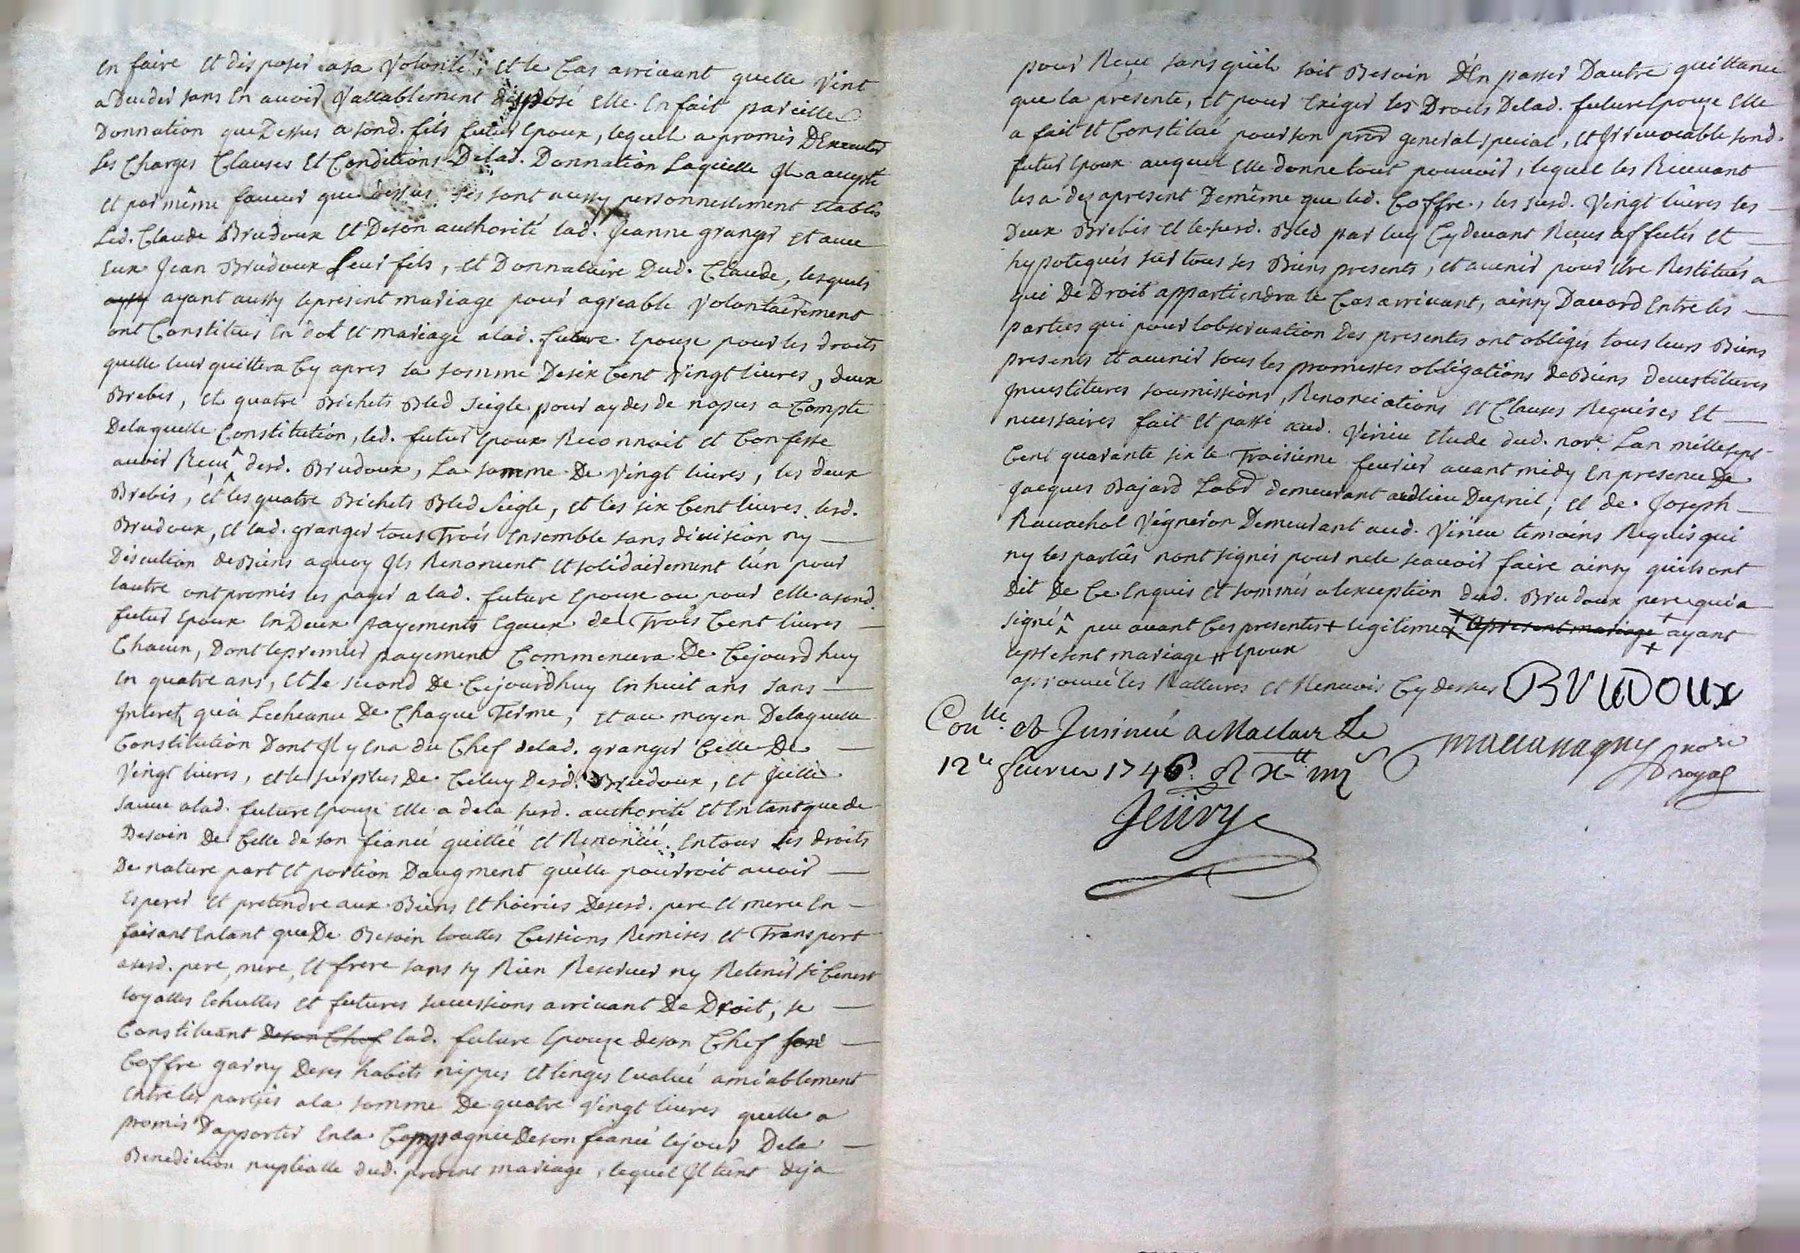 en faire et disposer a sa volonté, et le Cas arrivant quelle vint
a deceder sans en avoir vallablement disposé elle en fait pareille
Donnation que Dessus a sond. fils futur Epoux, lequel a promis DExecuter
les Charges Clauses et Conditions Delad. Donnation Laquelle Il a accepté
et par même faveur que dessus se sont aussy personnellement Etablis
Led. Claude Brudoux et De son authorité lad. Jeanne granger et avec
Eux Jean Brudoux Leur fils, et Donnataire Dud. Claude, lesquels
ayant aussy le present mariage pour agreable volontairement
ont Constitues en dot et mariage alad. future Epouze pour les droits
quelle leur quittera Cy apres la somme De six Cent vingt livres, deux
Brebis, et quatre Bichets Bled seigle pour ay des de nopces a Compte
De laquelle Constitution, led. futur Epoux Reconnoit et Confesse
avoir Receu desd. Brudoux, La somme De vingt livres, les deux
Brebis, et les quatre Bichets Bled Seigle, et les six Cent livres lesd.
Brudoux, et lad. granger tous Trois Ensemble sans division ny
Discution de Biens a quoy Ils Renoncent et solidairement lun pour
lautre ont promis les payer alad. future Epouse ou pour elle a sond.
futur Epoux en Deux payements Egaux de Trois Cent livres
Chacun, Dont le premier payement Commencera De Cejourd'huy
en quatre ans, et Le second De Cejourdhuy en huit ans sans
Interet qu'a Lecheance De Chaque Terme, et au moyen De laquelle
Constitution Dont Il y en a du Chef delad. granger Celle De
vingt livres, et le surplus De Celuy Desd. Brudoux, et Icelle
sauve alad. future Epouze Elle a de la susd. authorité et en tant que de
Besoin De Celle de son fiancé quitteé et Renonceé en tous les droits
De nature part et portion Daugment qu'elle pourroit avoir
Esperer et pretendre aux Biens et hoiries Desesd. pere et mere en
faisant en tant que De Besoin touttes Cessions Remises et Transport
asesd. pere, mere, et frere sans sy Rien Reserver ny Retenir si Cenest
loyalles Echuttes et futures successions arrivant De Droit, se
Constituant De son Chef lad. future Epouze de son Chef son
Coffre garny De ses habits nippes et linges Evalué amiablement
Entre les parties a la somme De quatre vingt livres quelle a
promis Dapporter En la Compagnie De son fiancé le jour De la
Benediction nuptialle dud. present mariage, lequel Il tient deja
pour Receu sans quil soit Besoin D'en passer Dautre quittance
que la presente, et pour Exiger les Droits Delad. future Epouze Elle
a fait et Constitué pour son procr general special, et Irrevocable sond.
futur Epoux auquel Elle donne tout pouvoir, lequel les Recevant
les a dez apresent De même que led. Coffre, les susd. vingt livres les
Deux Brebis et le susd. Bled par luy Cy devant Receus affectés et
hypotequés sur tous ses Biens presents, et avenir pour être Restitués a
qui De Droit appartiendra le Cas arrivant, ainsy Daccord Entre les
parties qui pour lobservation Des presentes ont obligés tous leurs Biens
presents et avenir sous les promesses obligations de Biens devestitures
Investitures soumissions, Renonciations et Clauses Requises et
necessaires fait et passé aud. vinieu Etude dud. nore. Lan mille sept
Cent quarante six le Troisieme fevrier avant midy En presence De
Jacques Bajard Labr demeurant audlieu Dupril, et de Joseph
Ravachol vigneron Demeurant aud. vinieu temoins Requis qui
ny les parties nont signés pour ne le scavoir faire ainsy quils ont
dit De Ce Enquis et sommés a lexception dud. Brudoux pere qui a
signé peu avant Ces presentes + legitime apresent mariage + ayant
le present mariage # Epoux
approuvé les Ratures et Renvois Cy dessus BVRDOUX
Conlle et Insinué a Maclas Le
12e fevrier 1746
nore
royal
Jeüry